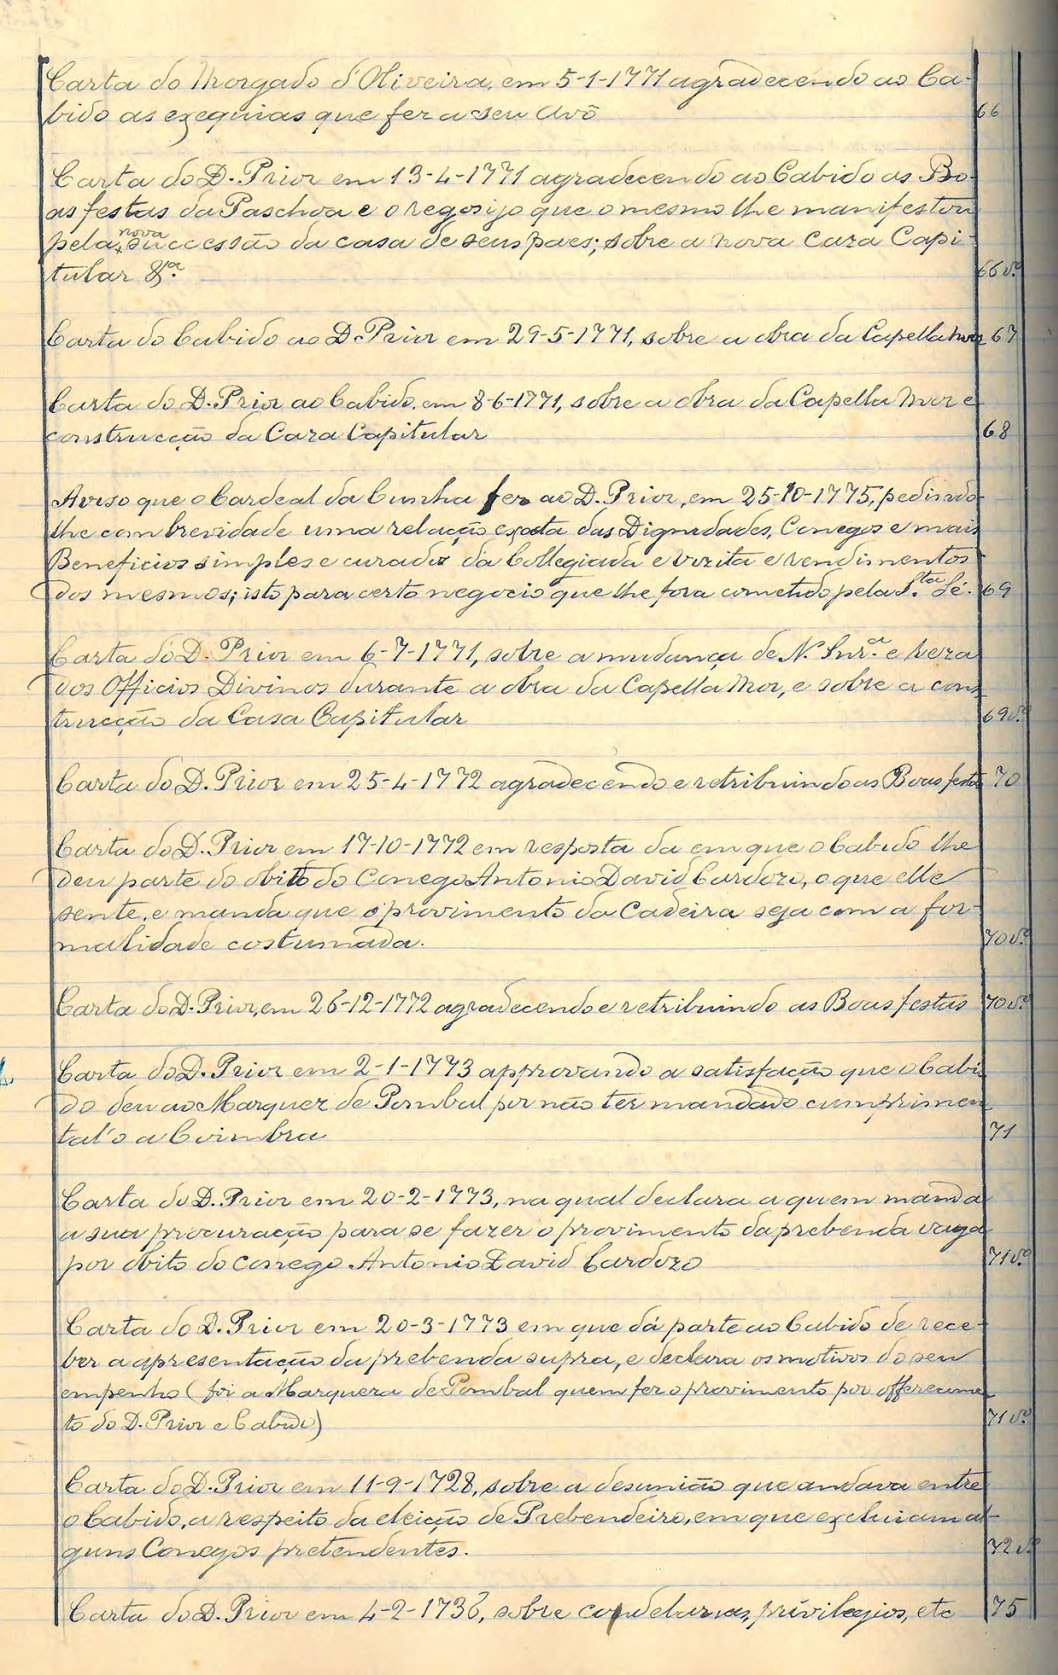 Carta do Morgado d'Oliveira, em 5-1-1771 agradecendo ao Ca-
bido as exequias que fez a seu Avô 66
Carta do D. Prior em 13-4-1771 agradecendo ao Cabido as Bo-
as festas da Paschoa e o regosijo que o mesmo lhe manifestou
pela nova successão da casa de seus paes; sobre a nova Caza Capi-
tular &ª. 66 vº
Carta do Cabido ao D. Prior em 29-5-1771, sobre a obra da Capella mor 67
Carta do D. Prior ao Cabido, em 8-6-1771, sobre a obra da Capella Mor e
construcção da Caza Capitular 68
Aviso que o Cardeal da Cunha fez ao D. Prior, em 25-10-1775, pedindo-
lhe com brevidade uma relação exacta das Dignidades, Conegos e mais
Beneficios simples e curados da Collegiada e vizita e rendimentos
dos mesmos; isto para certo negocio que lhe fora cometido pela S.ta Sé. 69
Carta do D. Prior em 6-7-1771, sobre a mudança de N. Snr.ª e reza
dos Officios Divinos durante a obra da Capella Mor, e sobre a cons
trucção da Casa Capitular 69 vº
Carta do D. Prior em 25-4-1772 agradecendo e retribuindo as Boas festas 70
Carta do D. Prior em 17-10-1772 em resposta da em que o Cabido lhe
deu parte do obito do Conego Antonio David Cardozo, o que elle
sente, e manda que o provimento da Cadeira seja com a for-
malidade costumada. 70 vº
Carta do D. Prior, em 26-12-1772 agradecendo e retribuindo as Boas festas 70 vº
Carta do D. Prior em 2-1-1773 approvando a satisfação que o Cabi
do deu ao Marquez de Pombal por não ter mandado cumprimen
tal'o a Coimbra 71
Carta do D. Prior em 20-2-1773, na qual declara a quem manda
a sua procuração para se fazer o provimento da prebenda vaga
por obito do Conego Antonio David Cardozo 71 vº
Carta do D. Prior em 20-3-1773 em que dá parte ao Cabido de rece-
ber a apresentação da prebenda supra, e declara os motivos do seu
empenho (foi a Marqueza de Pombal quem fez o provimento por offerecimen
to do D. Prior e Cabido) 71 vº
Carta do D. Prior em 11-9-1728, sobre a desunião que andava entre
o Cabido, a respeito da eleição de Prebendeiro, em que excluiam al-
guns Conegos pretendentes. 72 vº
Carta do D. Prior em 4-2-1736, sobre condelarias, privilegios, etc 75